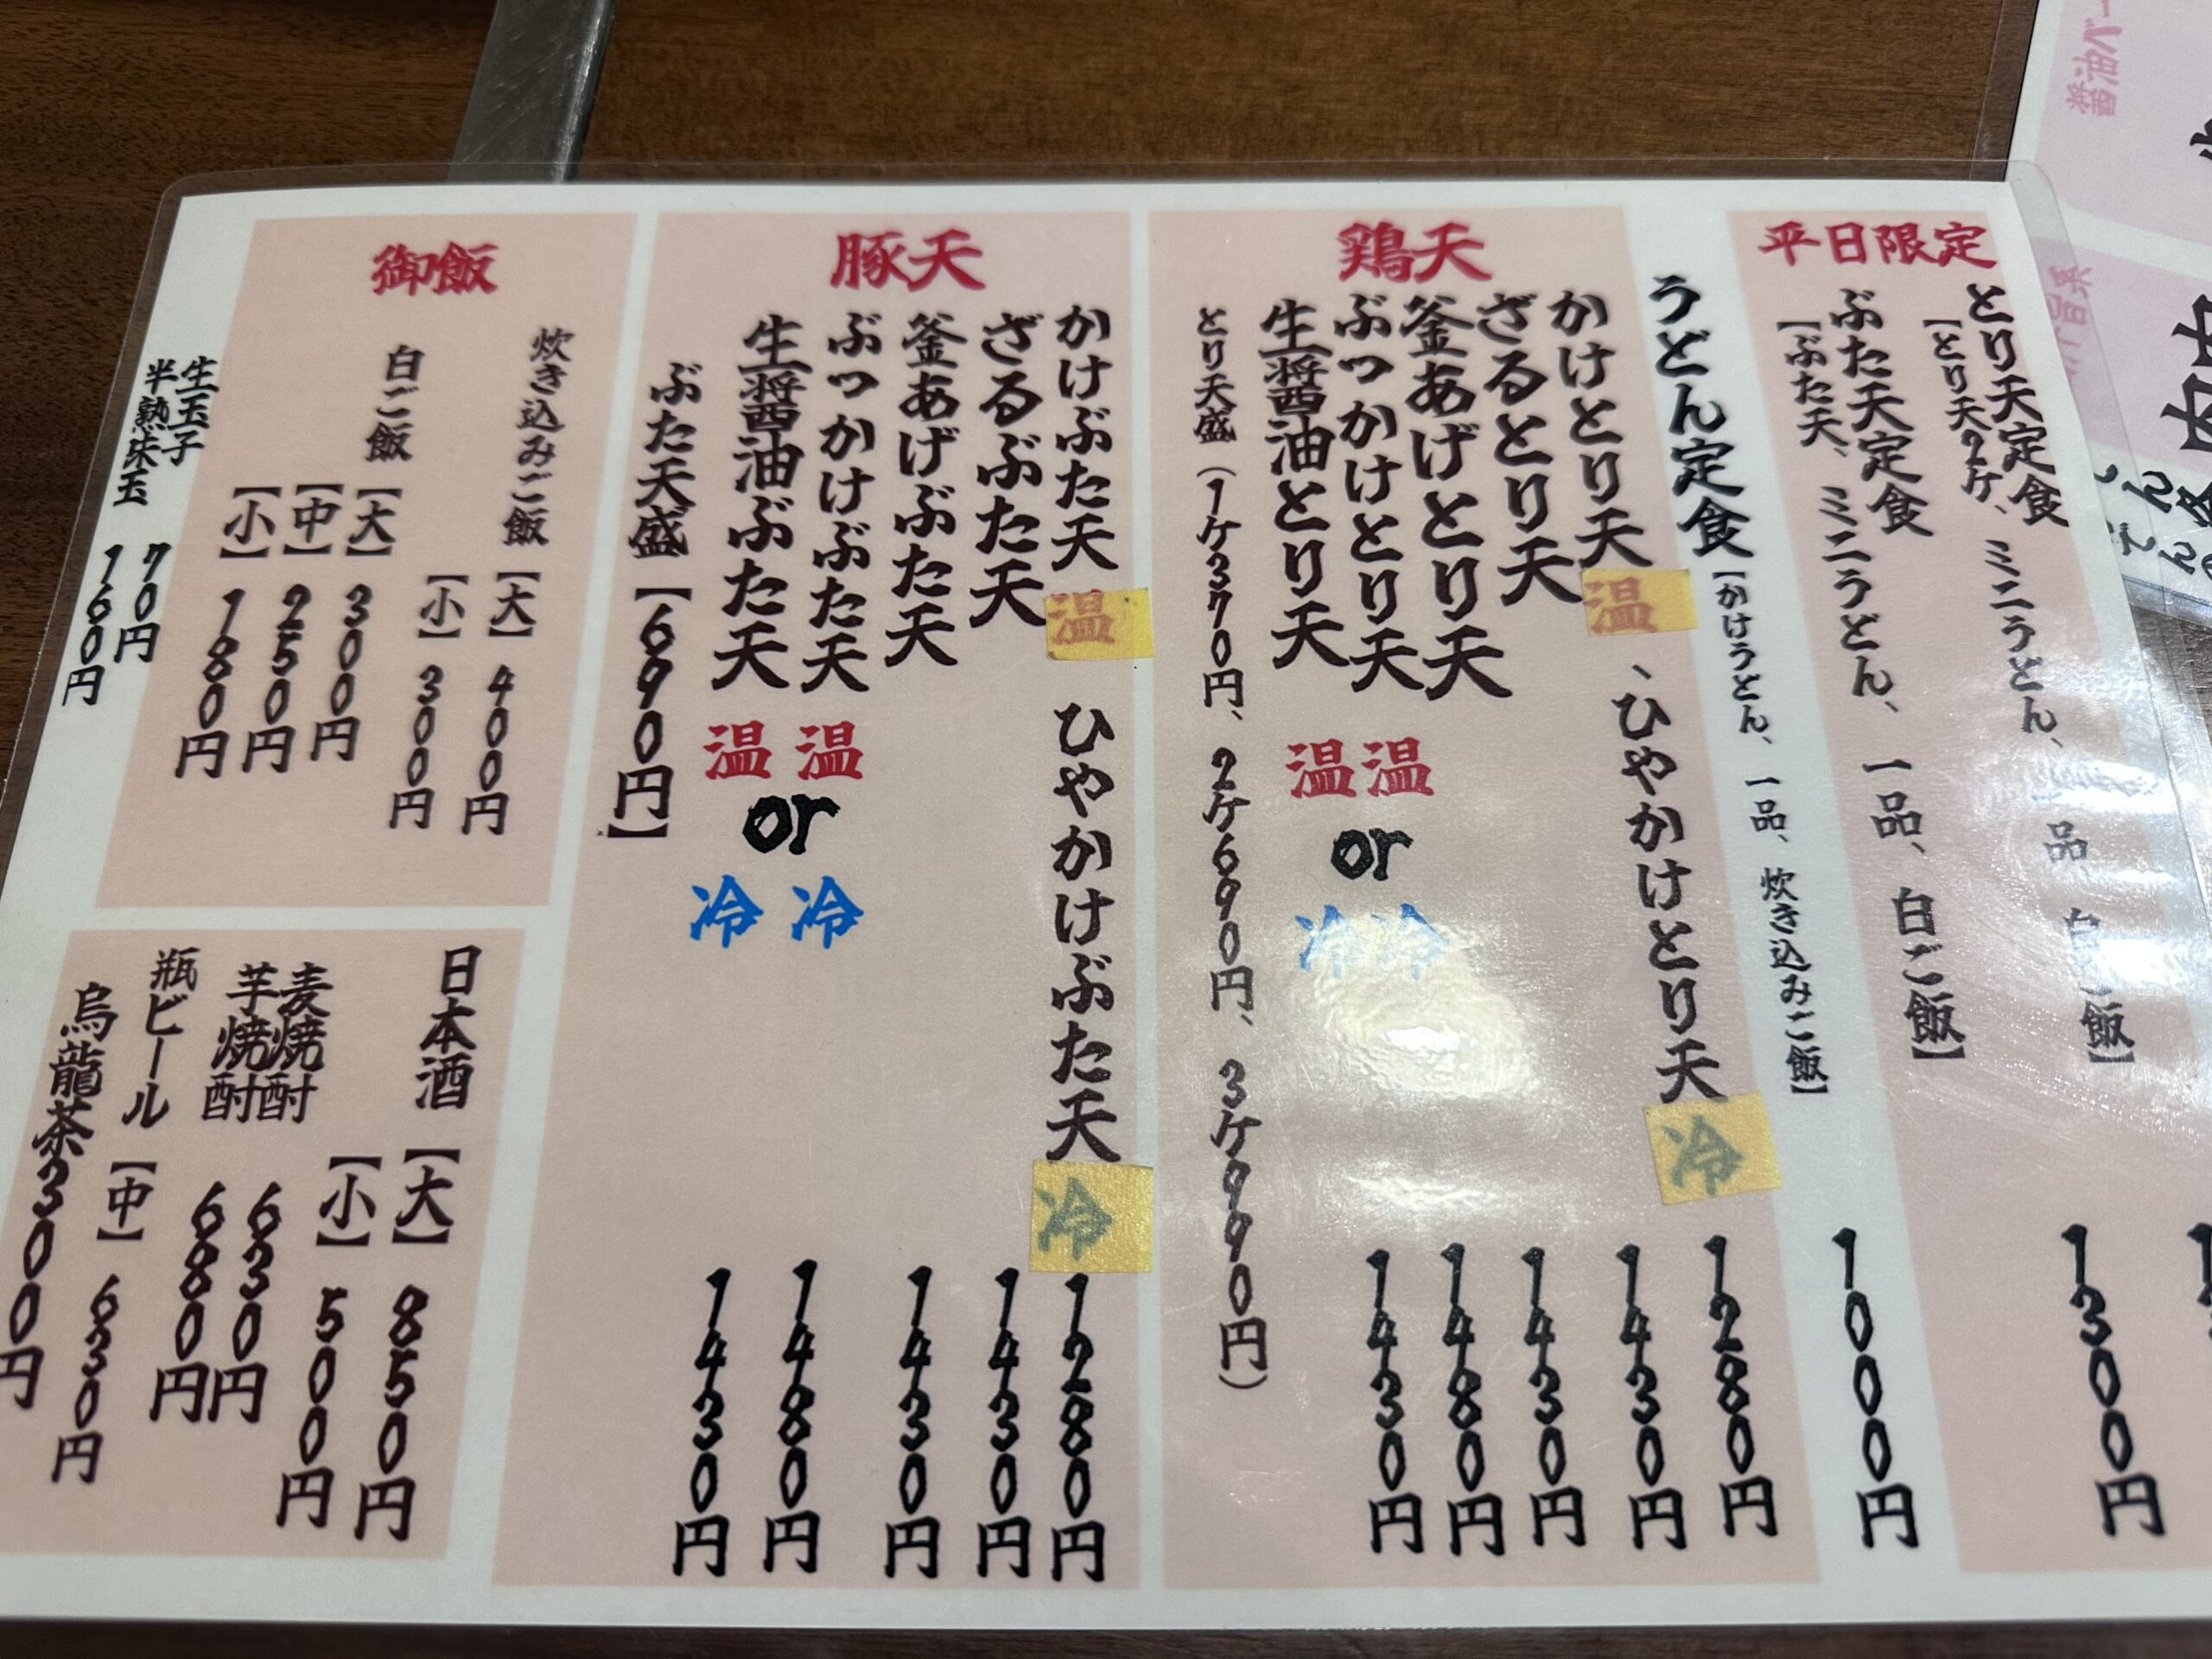 平日限定
とり天定食
【とり天2ケ、ミニうどん、一品、白ご飯】
ぶた天定食 1300円
【ぶた天、ミニうどん、一品、白ご飯】
うどん定食【かけうどん、一品、炊き込みご飯】 1000円
鶏天
かけとり天 温、ひやかけとり天 冷 1280円
ざるとり天 1430円
釜あげとり天 1430円
ぶっかけとり天 温 or 冷 1480円
生醤油とり天 温 or 冷 1430円
とり天盛(1ケ370円、2ケ690円、3ケ990円)
豚天
かけぶた天 温 ひやかけぶた天 冷 1280円
ざるぶた天 1430円
釜あげぶた天 1430円
ぶっかけぶた天 温 or 冷 1480円
生醤油ぶた天 温 or 冷 1430円
ぶた天盛【690円】
御飯
炊き込みご飯【大】400円
【小】300円
白ご飯【大】300円
【中】250円
【小】180円
生玉子 70円
半熟朱玉 160円
日本酒【大】850円
【小】500円
麦焼酎 630円
芋焼酎 680円
瓶ビール【中】630円
烏龍茶 300円
醤油ベー